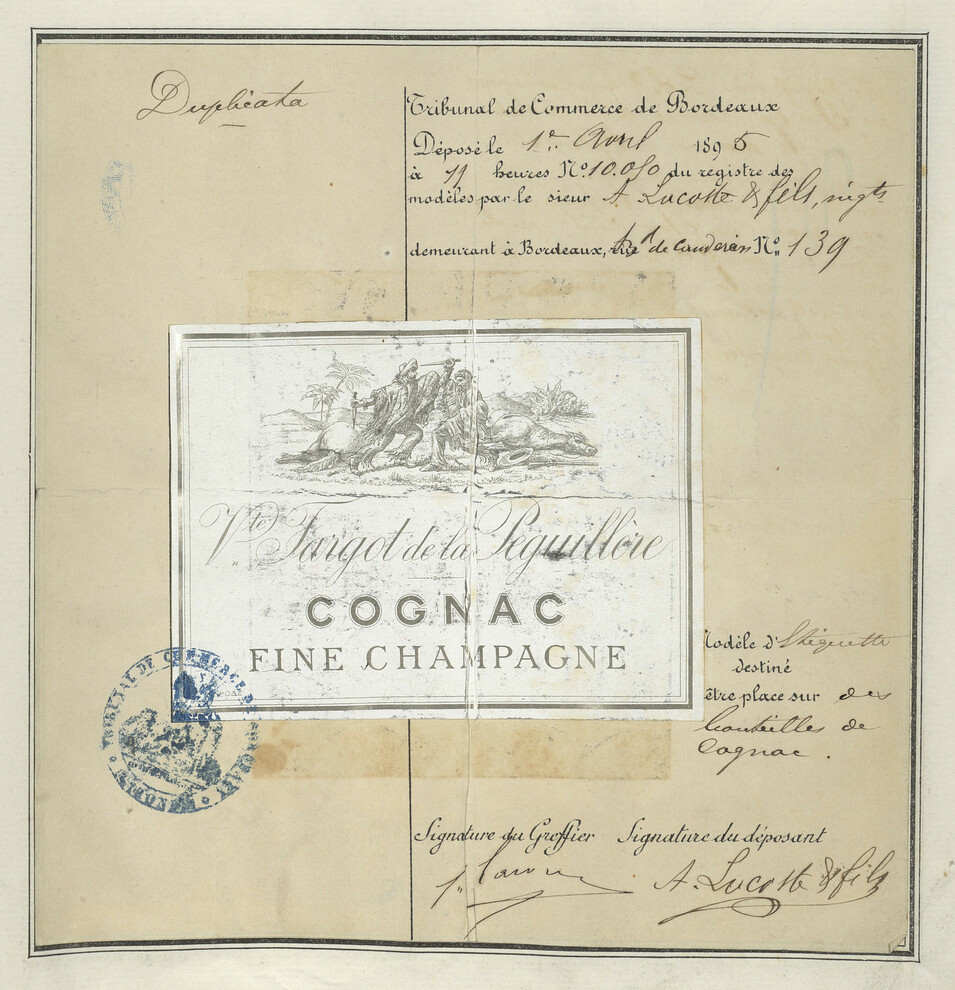 Duplicata
Tribunal de Commerce de Bordeaux
Déposé le 1er. Avril 1895
à 11 heures No. 10.050 du registre des
modèles par le sieur A. Lucotte & fils, négts
demeurant à Bordeaux, Bd de Caudéran No. 139
Vte Fargot de la Péguillère
COGNAC
FINE CHAMPAGNE
Modèle d'Etiquette
destiné
être place sur des
bouteilles de
Cognac.
TRIBUNAL DE COMMERCE DE
Signature du Greffier Signature du déposant
A. Lucotte & fils